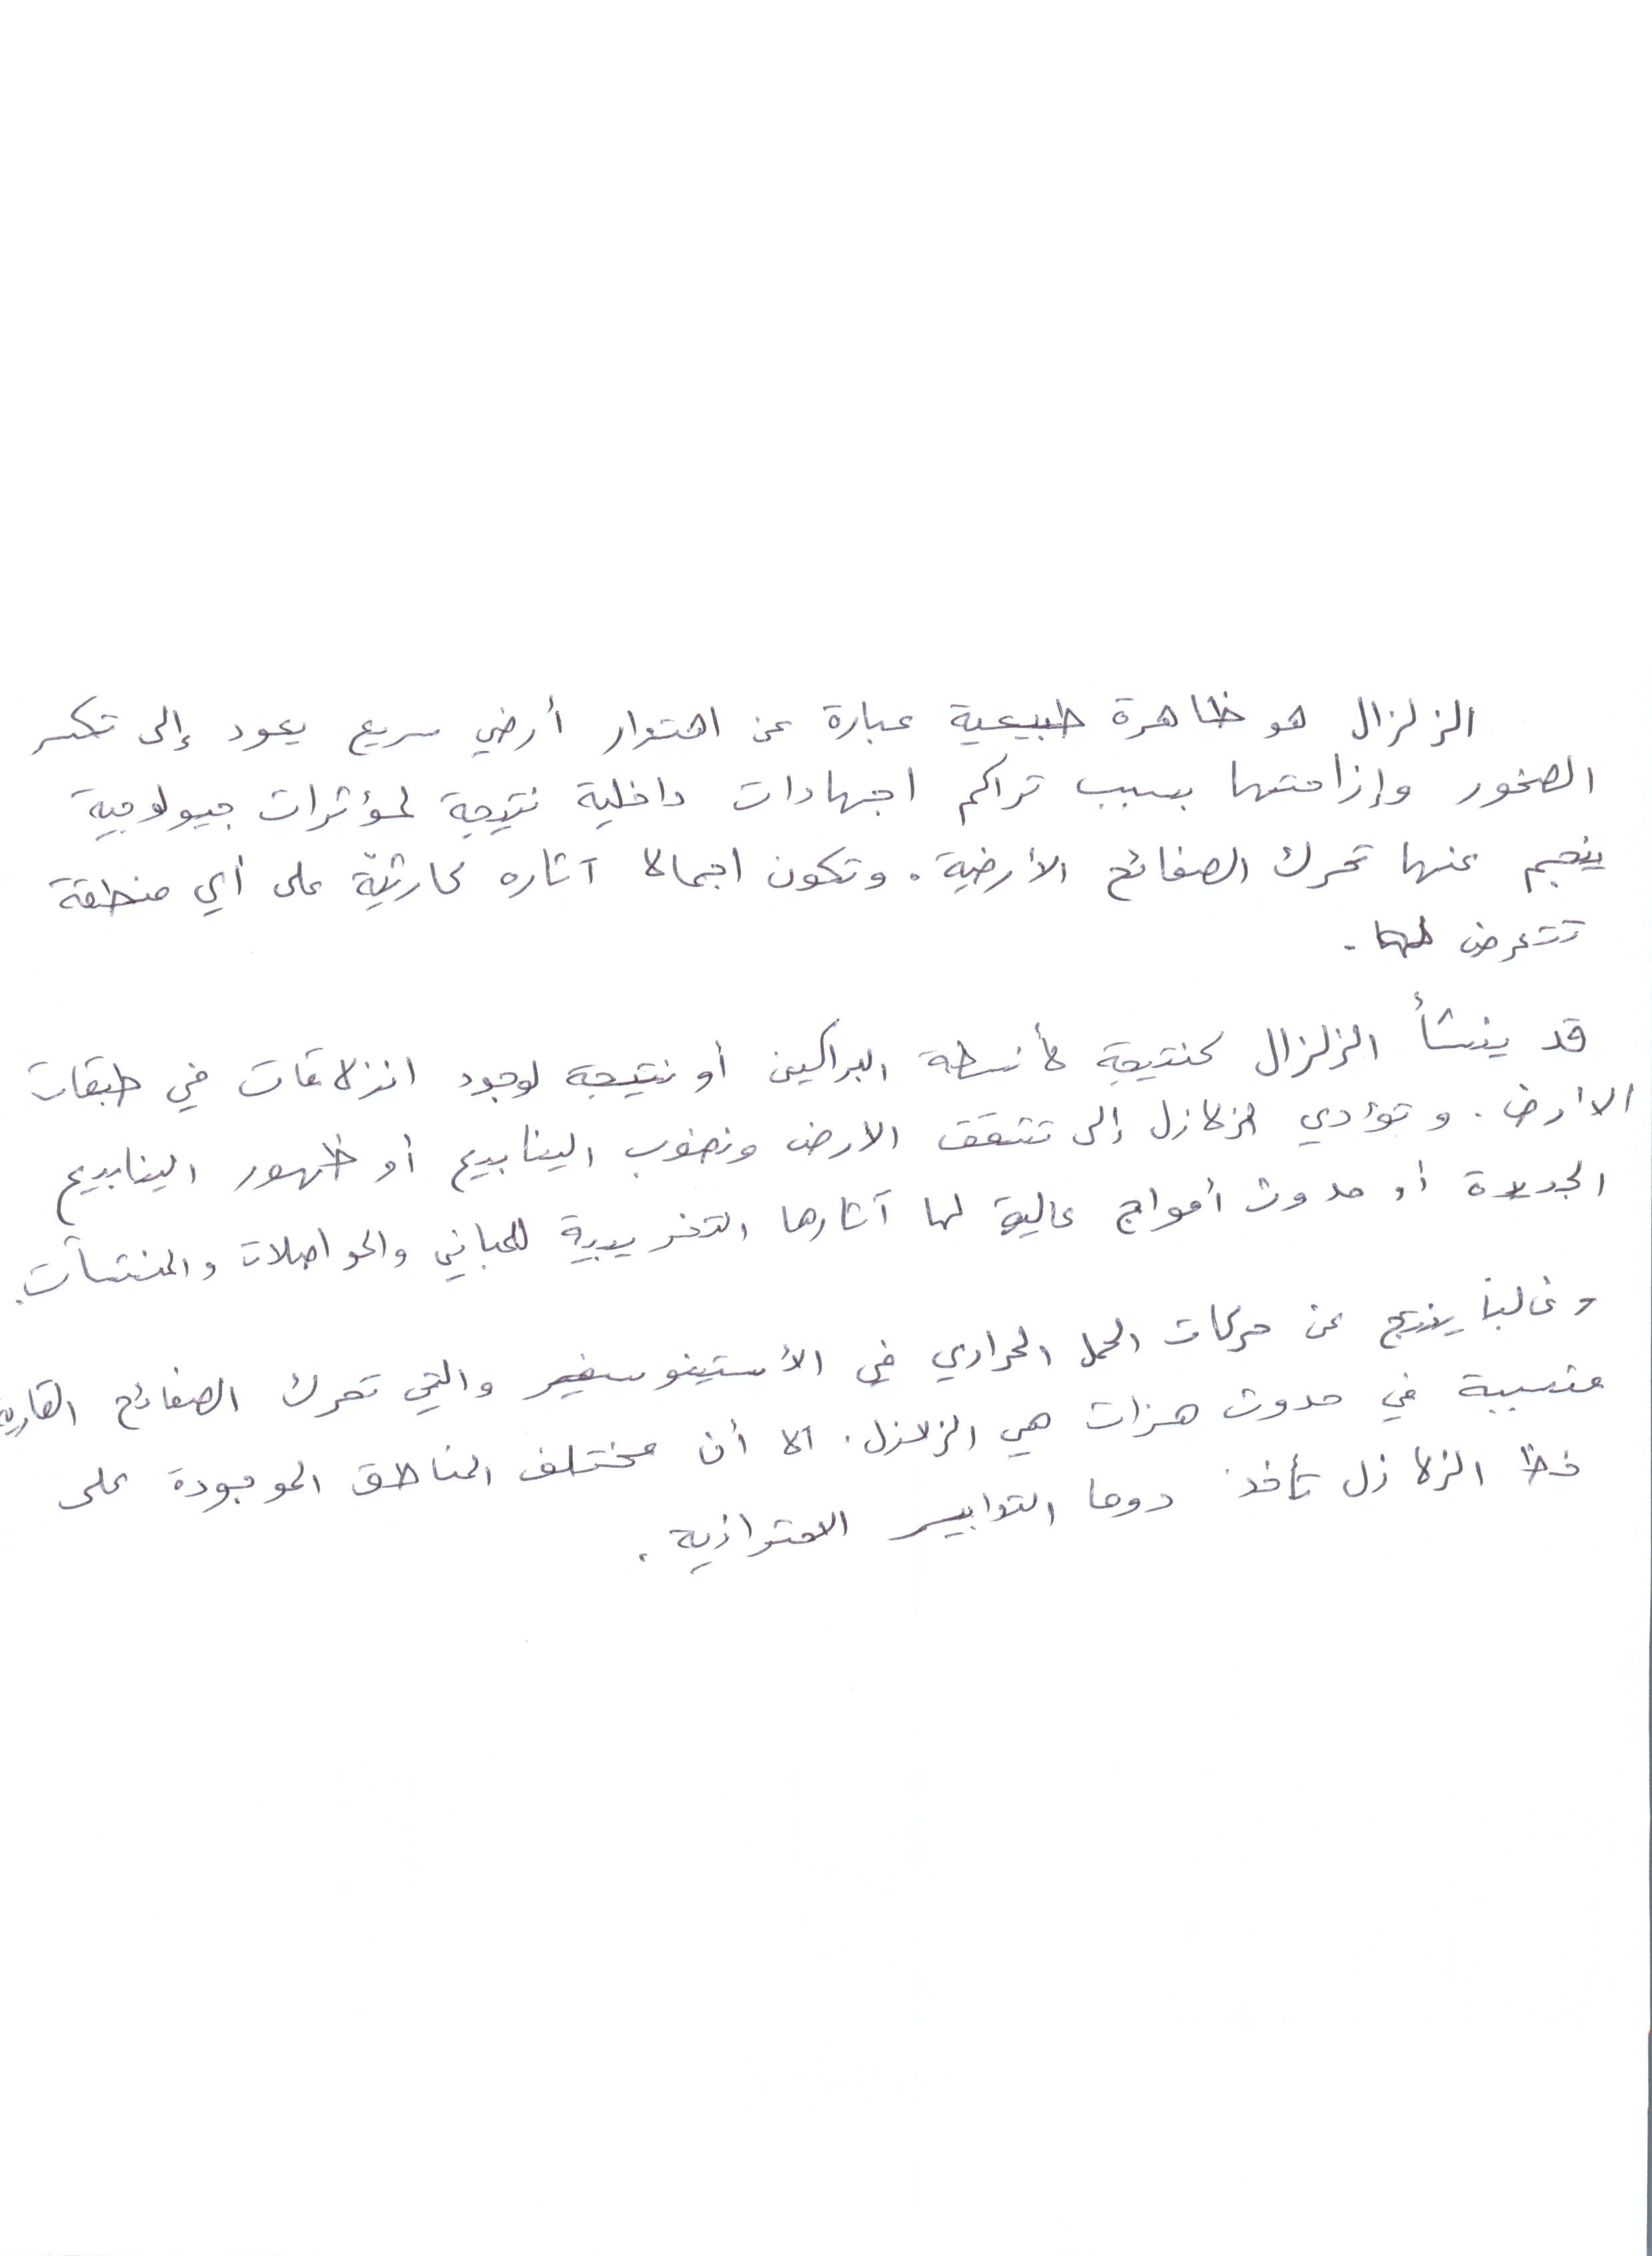 الزلزال هو ظاهرة طبيعية عبارة عن اهتزار أرضي سريع يعود إلى تكسر
الصخور وإزاحتها بسبب تراكم اجهادات داخلية نتيجة لمؤثرات جيولوجية
ينجم عنها تحرك الصفائح الأرضية. وتكون اجمالا آثاره كارثيّة على أي منطقة
تتعرض لها.
قد ينشأ الزلزال كنتيجة لأنسطة البراكين أو نتيجة لوجود انزلاقات في طبقات
الأرض. وتؤدي الزلازل إلى تشقق الارض ونضوب الينابيع أو ظهور الينابيع
الجديدة أو حدوث أمواج عالية لها آثارها التخريبية للمباني والمواصلات والمنشآت.
وغالبا ينتج عن حركات الحمل الحراري في الأستينوسفير والتي تحرك الصفائح القارية
متسببة في حدوث هزات هي الزلازل. الا أن مختلف المناطق الموجودة على
خط الزلازل تأخذ دوما التدابير الاحترازية.